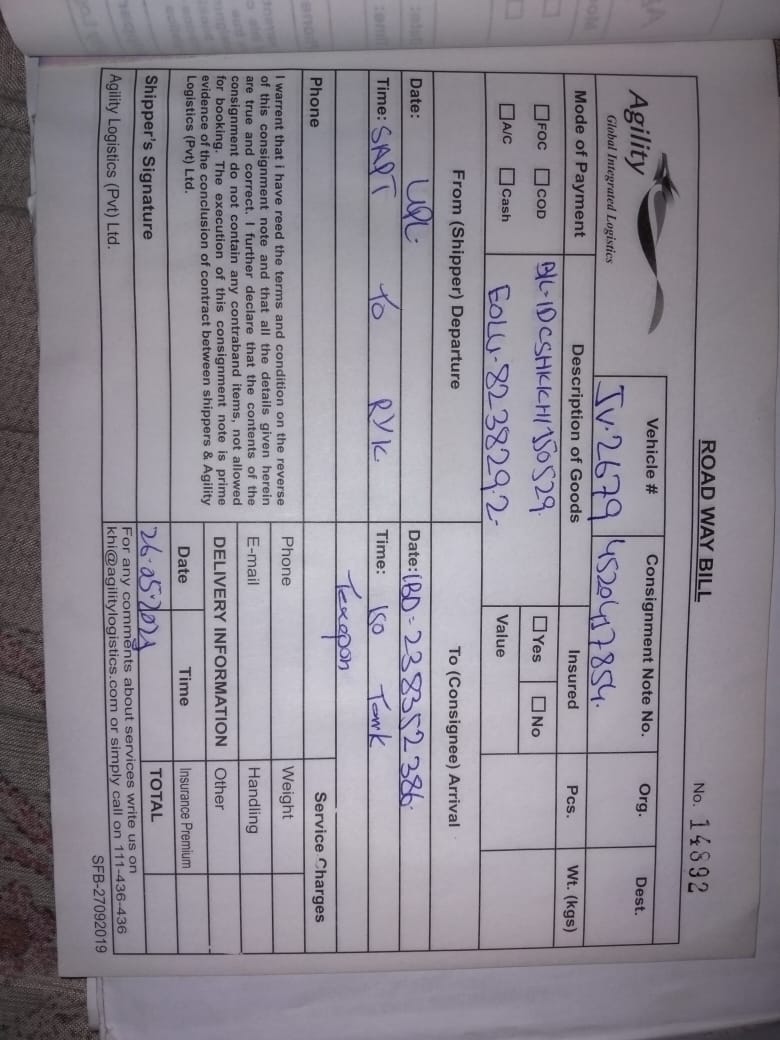 ROAD WAY BILL
No. 14892
Agility
Global Integrated Logistics
Vehicle #
Consignment Note No.
Org.
Dest.
JV.2679
Mode of Payment
Description of Goods
Insured
Pcs.
Wt. (kgs)
FOC COD
Yes No
A/C Cash
EOLU-823829.2-
Value
From (Shipper) Departure
To (Consignee) Arrival
Date: UPL.
Date: IBD-238352386.
Time: SAPT To RYK
Time: ISO Tank
Texapon
Phone
Service Charges
I warrent that i have reed the terms and condition on the reverse
of this consignment note and that all the details given herein
are true and correct. I further declare that the contents of the
consignment do not contain any contraband items, not allowed
for booking. The execution of this consignment note is prime
evidence of the conclusion of contract between shippers & Agility
Logistics (Pvt) Ltd.
Phone
Weight
E-mail
Handling
DELIVERY INFORMATION
Other
Date
Time
Insurance Premium
Shipper's Signature
26-05-2021
TOTAL
Agility Logistics (Pvt) Ltd.
For any comments about services write us on
khi@agilitylogistics.com or simply call on 111-436-436
SFB-27092019